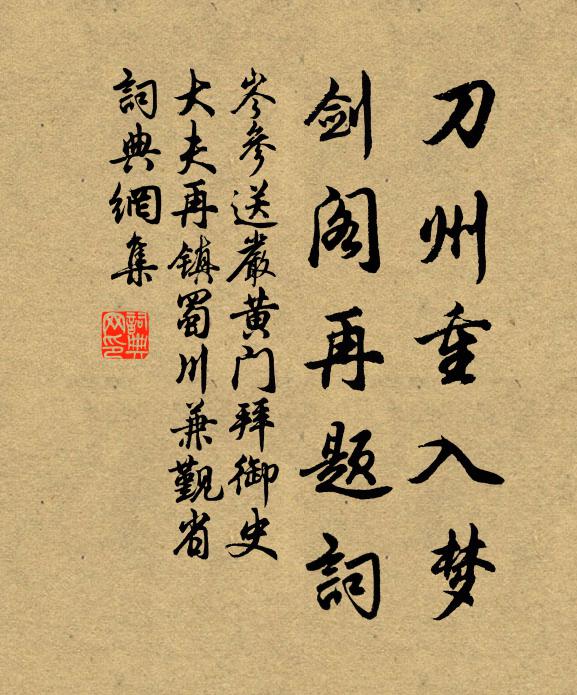 刀州重入梦
剑阁再题詞
岑參送嚴黄门拜御史
大夫再镇蜀川兼觐省
詞典網集
詞典
网印